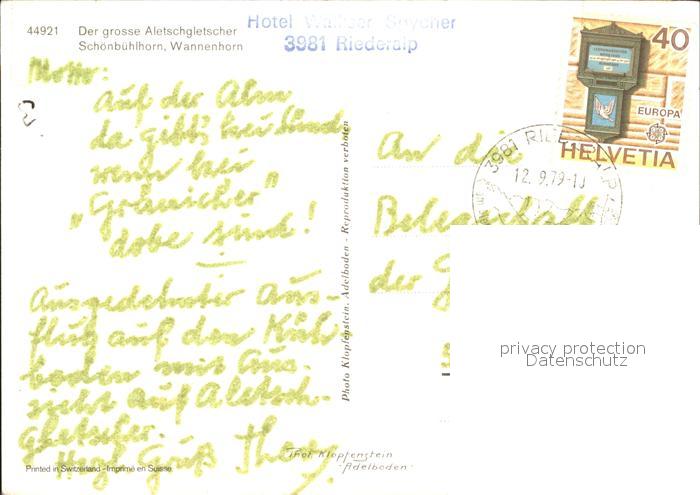 44921 Der grosse Aletschgletscher
Schönbühlhorn, Wannenhorn
Hotel Walliser Spycher
3981 Riederalp
40
EUROPA
HELVETIA
3981 RIEDERALP
12.9.79-10
Motto:
Auf der Alm
da gibt's kei Sünd
wenn kei
"
dobe sind!
Ausgedehnter Aus-
flug auf den Küh-
boden mit Aus-
sicht auf Aletsch-
gletscher.
Herzl Gruß
An die
Belegschaft
der
Photo Klopfenstein, Adelboden - Reproduktion verboten
Phot. Klopfenstein
Adelboden
Printed in Switzerland - Imprimé en Suisse
privacy protection
Datenschutz